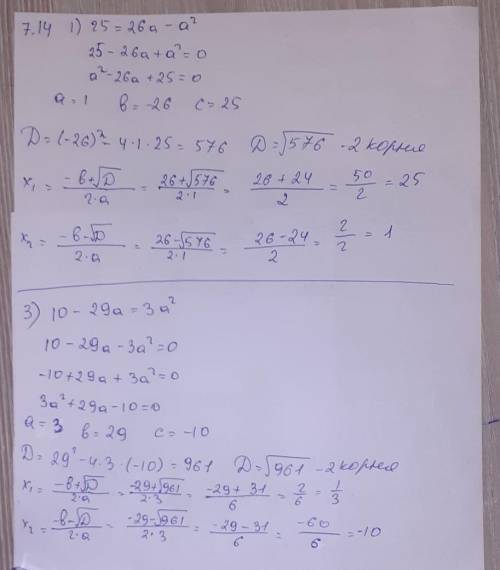 7.14 1) 25 = 26a - a²
25 - 26a + a² = 0
a² - 26a + 25 = 0
a = 1 в = -26 c = 25
D = (-26)² - 4·1·25 = 576 D = √576 - 2 корня
x₁ = (-в+√D)/(2·a) = (26+√576)/(2·1) = (26+24)/2 = 50/2 = 25
x₂ = (-в-√D)/(2·a) = (26-√576)/(2·1) = (26-24)/2 = 2/2 = 1
3) 10 - 29a = 3a²
10 - 29a - 3a² = 0
-10 + 29a + 3a² = 0
3a² + 29a - 10 = 0
a = 3 в = 29 c = -10
D = 29² - 4·3·(-10) = 961 D = √961 - 2 корня
x₁ = (-в+√D)/(2·a) = (-29+√961)/(2·3) = (-29+31)/6 = 2/6 = 1/3
x₂ = (-в-√D)/(2·a) = (-29-√961)/(2·3) = (-29-31)/6 = -60/6 = -10